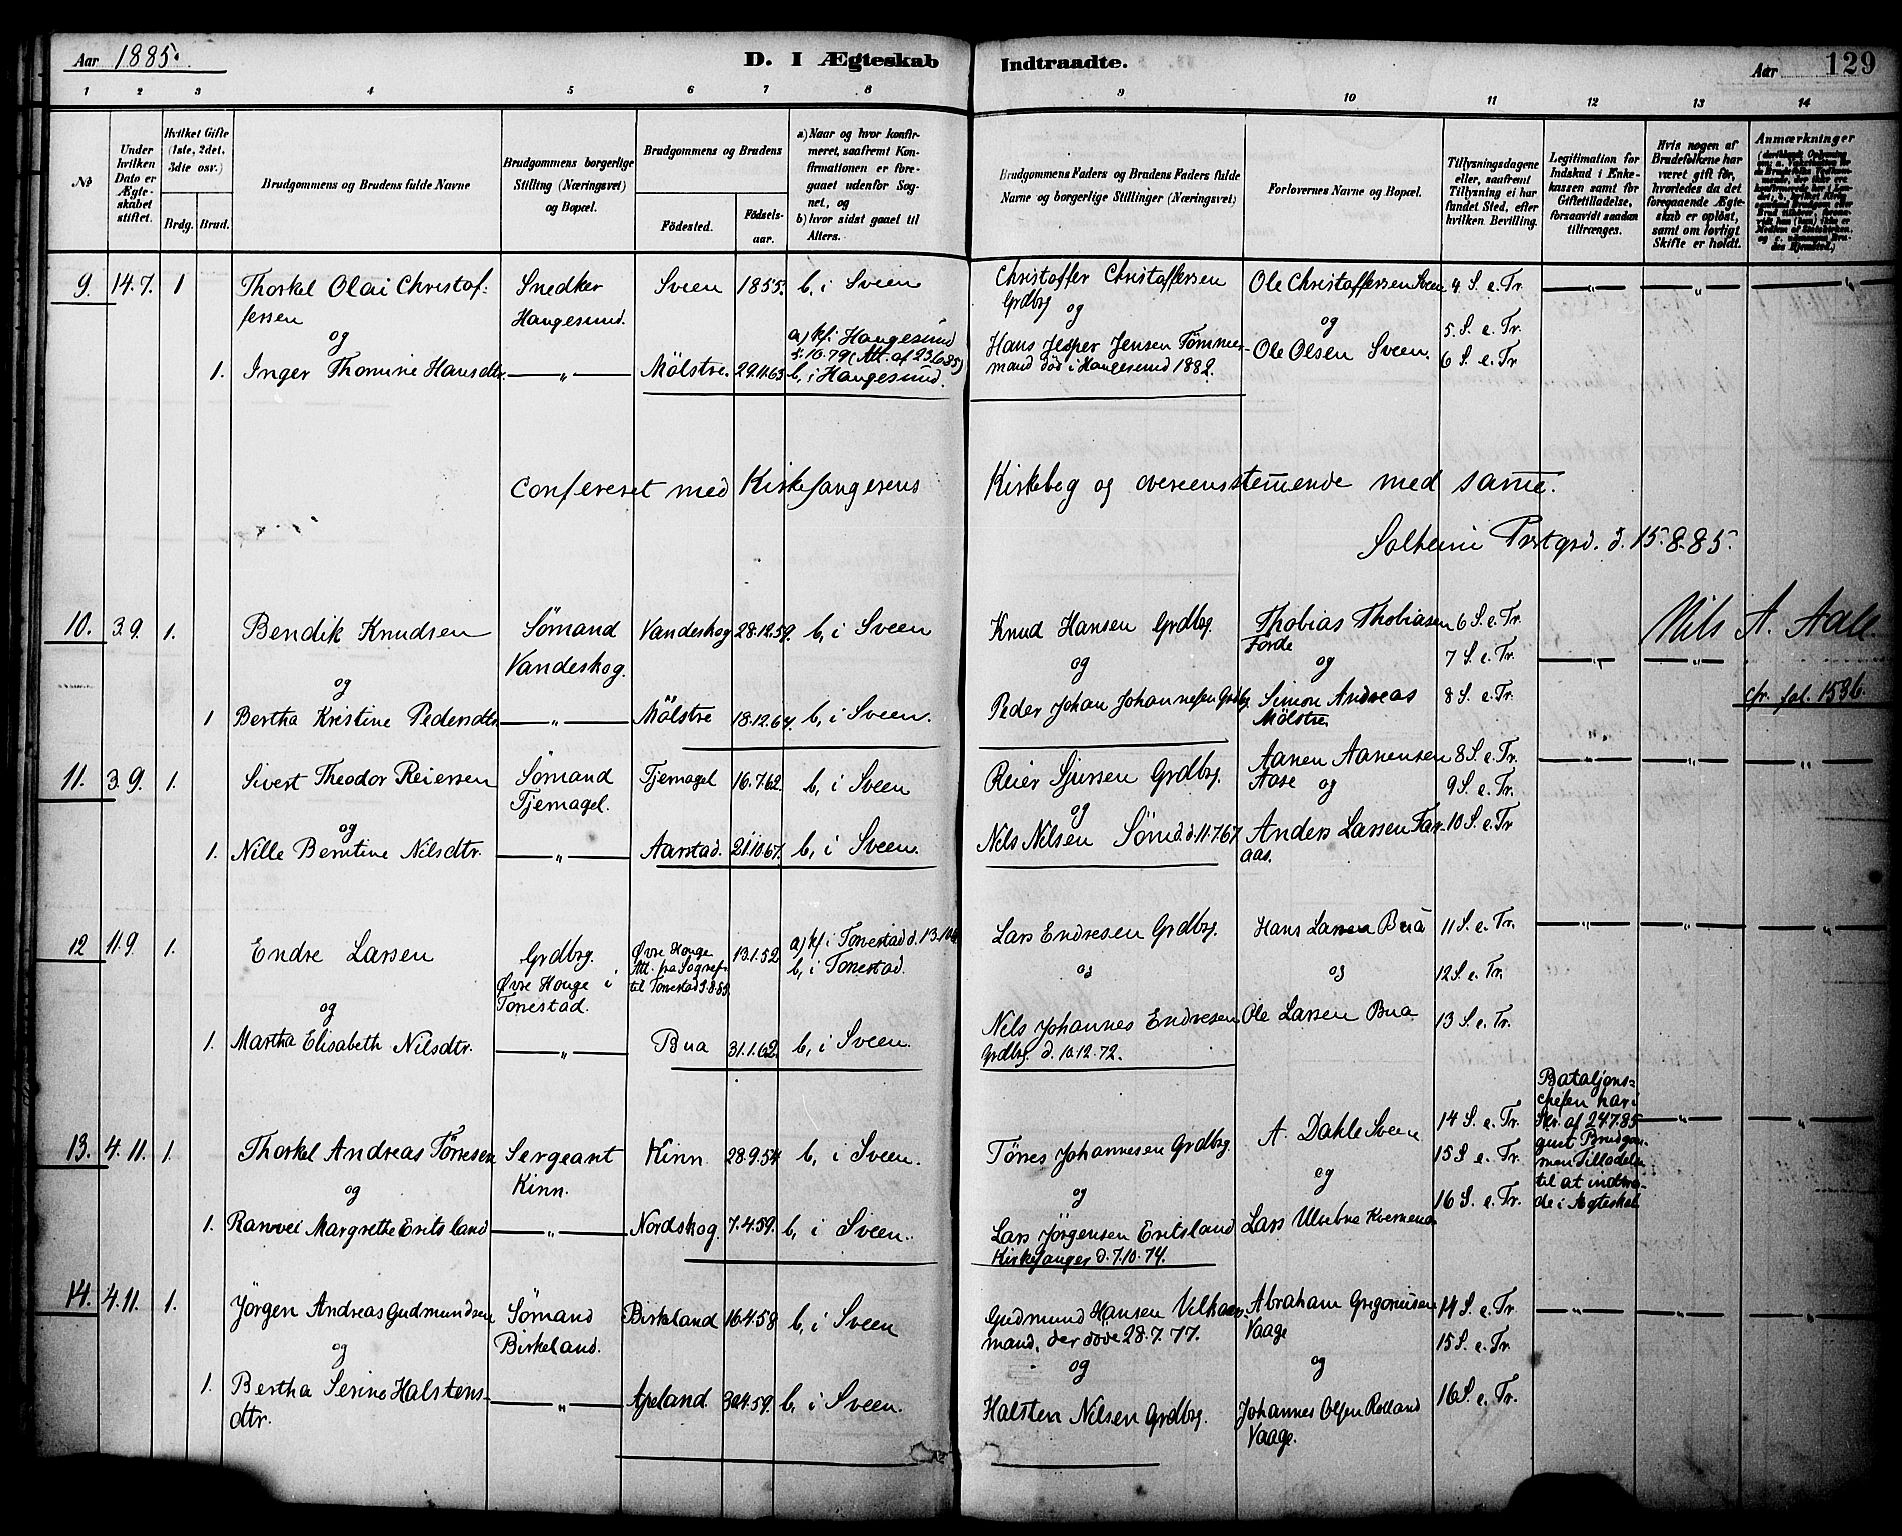 Aar 1885.
D. I Ægteskab Indtraadte.
Aar 129
1 2 3 4 5 6 7 8 9 10 11 12 13 14
No
Under hvilken Dato er Ægteskabet stiftet.
Hvilket Gifte (1ste, 2det, 3dte osv.)
Brdg. Brud.
Brudgommens og Brudens fulde Navne
Brudgommens borgerlige Stilling (Næringsvei) og Bopæl.
Brudgommens og Brudens
Fødested. Fødselsaar.
a) Naar og hvor konfirmeret, saafremt Konfirmationen er foregaaet udenfor Sognet, og
b) hvor sidst gaaet til Alters.
Brudgommens Faders og Brudens Faders fulde Navne og borgerlige Stillinger (Næringsvei)
Forlovernes Navne og Bopæl.
Tillysningsdagene eller, saafremt Tillysning ei har fundet Sted, efter hvilken Bevilling.
Legitimation for Indskud i Enkekassen samt for Giftetilladelse, forsaavidt saadan tiltrænges.
Hvis nogen af Brudefolkene har været gift før, hvorledes da det foregaaende Ægteskab er opløst, samt om lovligt Skifte er holdt.
Anmærkninger
9. 14.7. 1 Thorkel Olai Christoffersen Snedker Haugesund. Sveen 1855. b, i Sveen Christoffer Christoffersen Grdbrg Ole Christoffersen Sveen 4 S. e. Tr. — „ — — „ — — „
og og og 5. S. e. Tr.
1. Inger Thomine Hansdtr. — „ — Mölstre. 29.11.63 a) kf. i Haugesund 5.10.79 (Att. af 23.6.85) b, i Haugesund. Hans Jesper Jensen Tømmermand död i Haugesund 1882. Ole Olsen Sveen. 6 S. e. Tr
Confereret med Kirkesangerens Kirkebog og overeensstemmende med samme.
Solheim Prstgrd. d. 15.8.85.
Nils A. Aall.
10. 3.9. 1. Bendik Knudsen Sømand Vandeskog. Vandeskog 28.12.59. b, i Sveen Knud Hansen Grdbrg. Thobias Thobiasen Førde 6 S. e. Tr.
og og og 7 S. e. Tr. — „ — — „ —
1 Bertha Kristine Pedersdtr. — „ — Mölstre 18.12.64. b, i Sveen. Peder Johan Johannesen Grdbrg. Simon Andreas Mölstre. 8 S. e. Tr. cfr. fol. 153 b.
11. 3 9. 1. Sivert Theodor Reiersen Sømand Tjernagel. Tjernagel 16.7.62. b, i Sveen Reier Sjursen Grdbrg. Aanen Aanensen Aase 8 S. e. Tr. — „ — — „ — — „
og og og 9 S. e. Tr.
1. Nille Berntine Nilsdtr. — „ — Aarstad. 21.10.67. b, i Sveen. Nils Nilsen Sömd. d. 11.7.67 Anders Larsen Faraas. 10 S. e. Tr
12 11.9 1. Endre Larsen Grdbrg. Øvre Houge i Torvestad. Øvre Houge Att. fra Sognepr. til Torvestad 3.8.85. 13.1.52 a) kf. i Torvestad d. 13.10.4 b, i Torvestad. Lars Endresen Grdbrg. Hans Larsen Bua 11 S. e. Tr. — „ — — „ — — „
og og og 12 S. e. Tr.
1. Martha Elisabeth Nilsdtr. — „ — Bua 31.1.62. b, i Sveen. Nels Johannes Endresen Grdbrg. d. 10.12.72. Ole Larsen Bua 13 S. e. Tr.
13. 4.11. 1. Thorkel Andreas Tönnesen Sergeant Kinn. Kinn 28.9.54 b, i Sveen. Tönnes Johannesen Grdbrg. A. Dahle Sveen 14 S. e. Tr. Bataljonschefen har i Skr. af 24.7.85 givet Brudgommen Tilladelse til at indtræde i Ægteskab — „ — — „
og og og 15 S. e. Tr.
1. Ranvei Margrethe Eritsland — „ — Nordskog. 7.4.59. b, i Sveen. Lars Jörgensen Eritsland Kirkesanger d. 7.10.74. Lars Ulvebne Kvernenes 16 S. e. Tr.
14. 4.11. 1. Jörgen Andreas Gudmundsen Sömand Birkeland. Birkeland 16.4.58 b, i Sveen Gudmund Hansen Vilkaarmand, der döde 28.7.77. Abraham Gregoriusen Vaage 14 S. e. Tr — „ — — „ — — „
og og og 15 S. e. Tr.
1. Bertha Serine Halstensdtr. — „ — Apeland. 30.4.59. b, i Sveen. Halsten Nilsen Grdbrg. Johannes Olsen Rolland Vaage. 16 S. e. Tr.